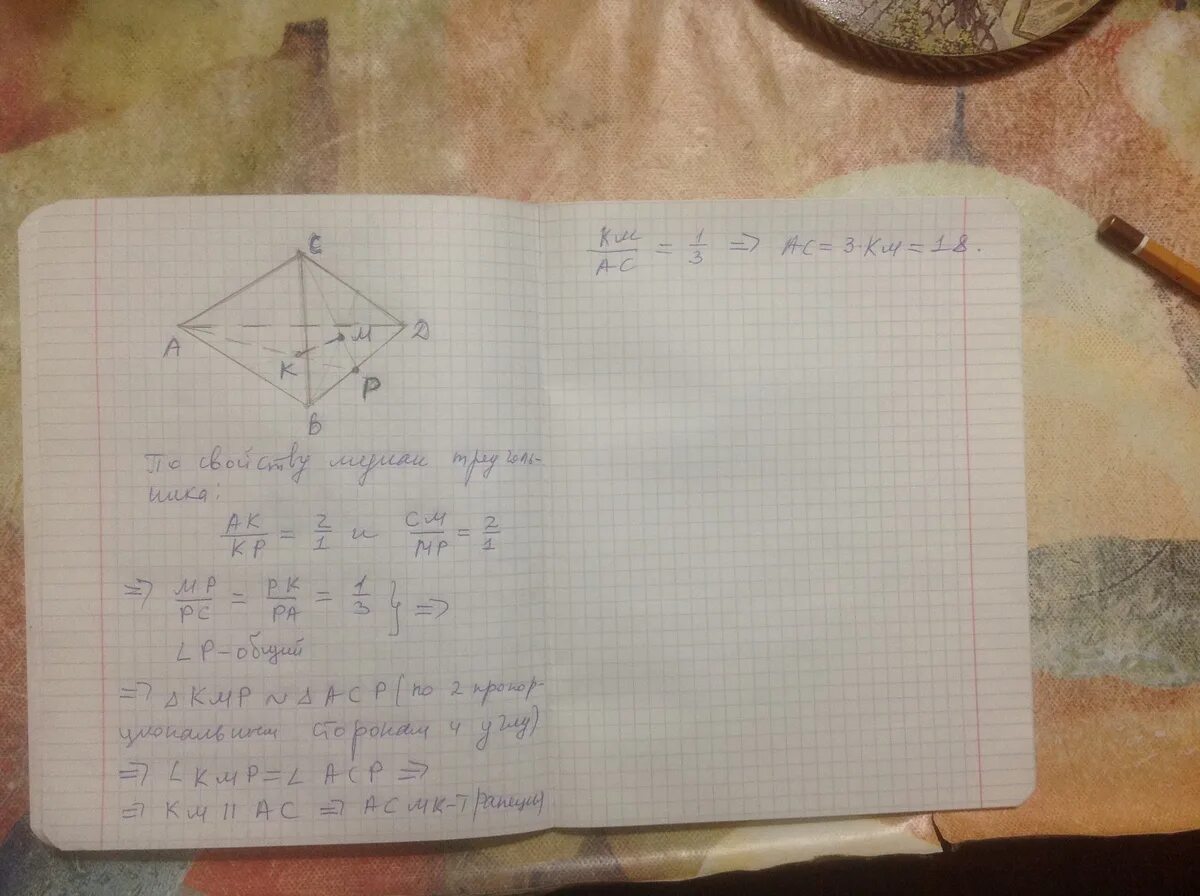 C
A
M
D
K
P
B
По свойству медиан треуголь-
ника:
AK/KP = 2/1 и CM/MP = 2/1
=> MP/PC = PK/PA = 1/3 } =>
∠P-общий
=> △KMP ~ △ACP (по 2 пропор-
циональным сторонам и углу)
=> ∠KMP = ∠ACP =>
=> KM || AC => ACMK-трапеция
KM/AC = 1/3 => AC = 3·KM = 18.